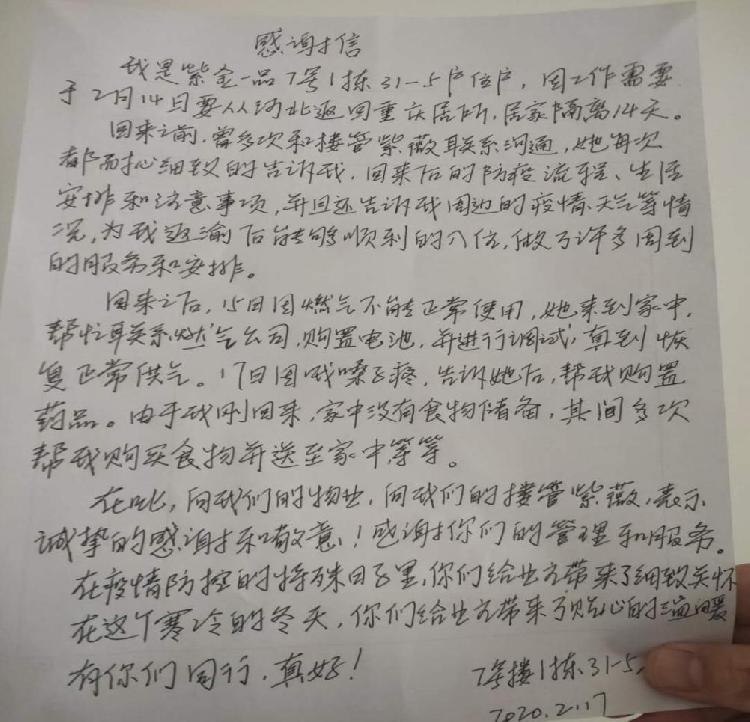 感谢信
我是紫金一品7号1栋31-5户住户，因工作需要
于2月14日要从河北返回重庆居所，居家隔离14天。
回来之前，曾多次和楼管紫薇联系沟通，她每次
都耐心细致的告诉我，回来后的防疫流程、生活
安排和注意事项，并且还告诉我周边的疫情、天气等情
况，为我返渝后能够顺利的入住，做了许多周到
的服务和安排。
回来之后，15日因燃气不能正常使用，她来到家中，
帮忙联系燃气公司，购置电池，并进行调试，直到恢
复正常供气。17日因我嗓子疼，告诉她后，帮我购置
药品。由于我刚回来，家中没有食物储备，其间多次
帮我购买食物并送至家中等等。
在此，向我们的物业，向我们的楼管紫薇，表示
诚挚的感谢和敬意！感谢你们的管理和服务。
在疫情防控的特殊日子里，你们给业主带来了细致关怀
在这个寒冷的冬天，你们给业主带来了贴心的温暖
有你们同行，真好！
7号楼1栋31-5
2020.2.17